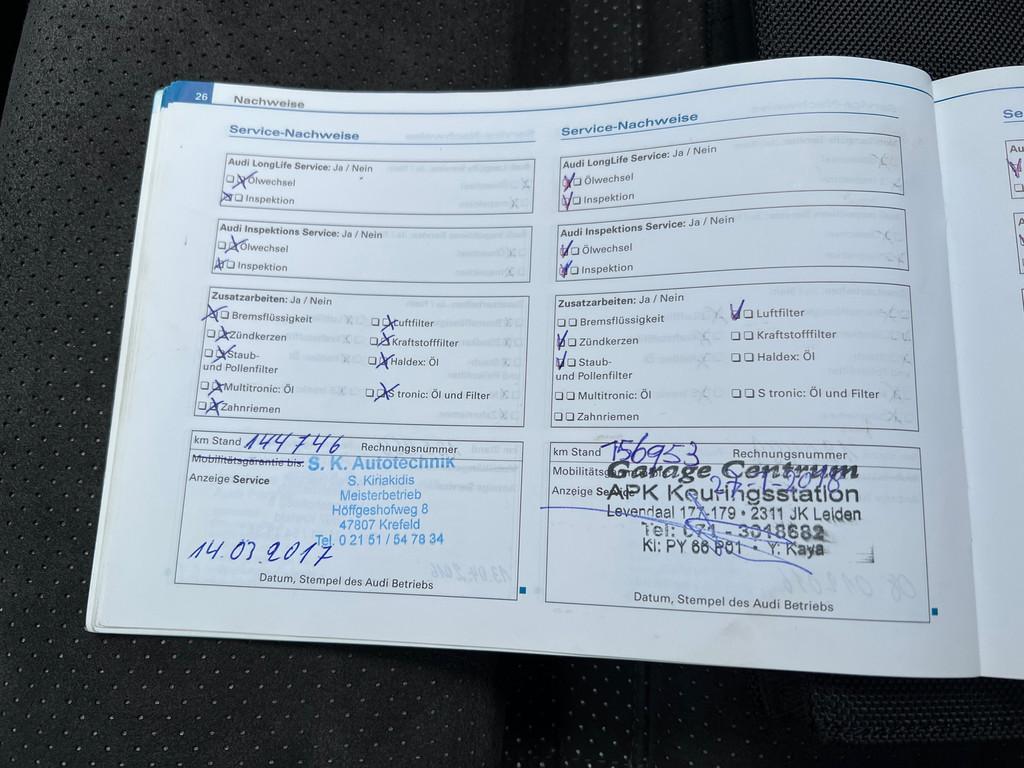 26 Nachweise
Service-Nachweise
Audi LongLife Service: Ja / Nein
Ölwechsel
Inspektion
Audi Inspektions Service: Ja / Nein
Ölwechsel
Inspektion
Zusatzarbeiten: Ja / Nein
Bremsflüssigkeit Luftfilter
Zündkerzen Kraftstofffilter
Staub- Haldex: Öl
und Pollenfilter
Multitronic: Öl S tronic: Öl und Filter
Zahnriemen
km Stand 144746 Rechnungsnummer
Mobilitätsgarantie bis:
Anzeige Service
S. K. Autotechnik
S. Kiriakidis
Meisterbetrieb
Höffgeshofweg 8
47807 Krefeld
Tel. 0 21 51 / 54 78 34
14.03.2017
Datum, Stempel des Audi Betriebs
Service-Nachweise
Audi LongLife Service: Ja / Nein
Ölwechsel
Inspektion
Audi Inspektions Service: Ja / Nein
Ölwechsel
Inspektion
Zusatzarbeiten: Ja / Nein
Bremsflüssigkeit Luftfilter
Zündkerzen Kraftstofffilter
Staub- Haldex: Öl
und Pollenfilter
Multitronic: Öl S tronic: Öl und Filter
Zahnriemen
km Stand 156953 Rechnungsnummer
Anzeige
Garage Centrum
APK Keuringsstation
Levendaal 177-179 • 2311 JK Leiden
Tel: 071 - 3018682
Y. Kaya
Datum, Stempel des Audi Betriebs
Se